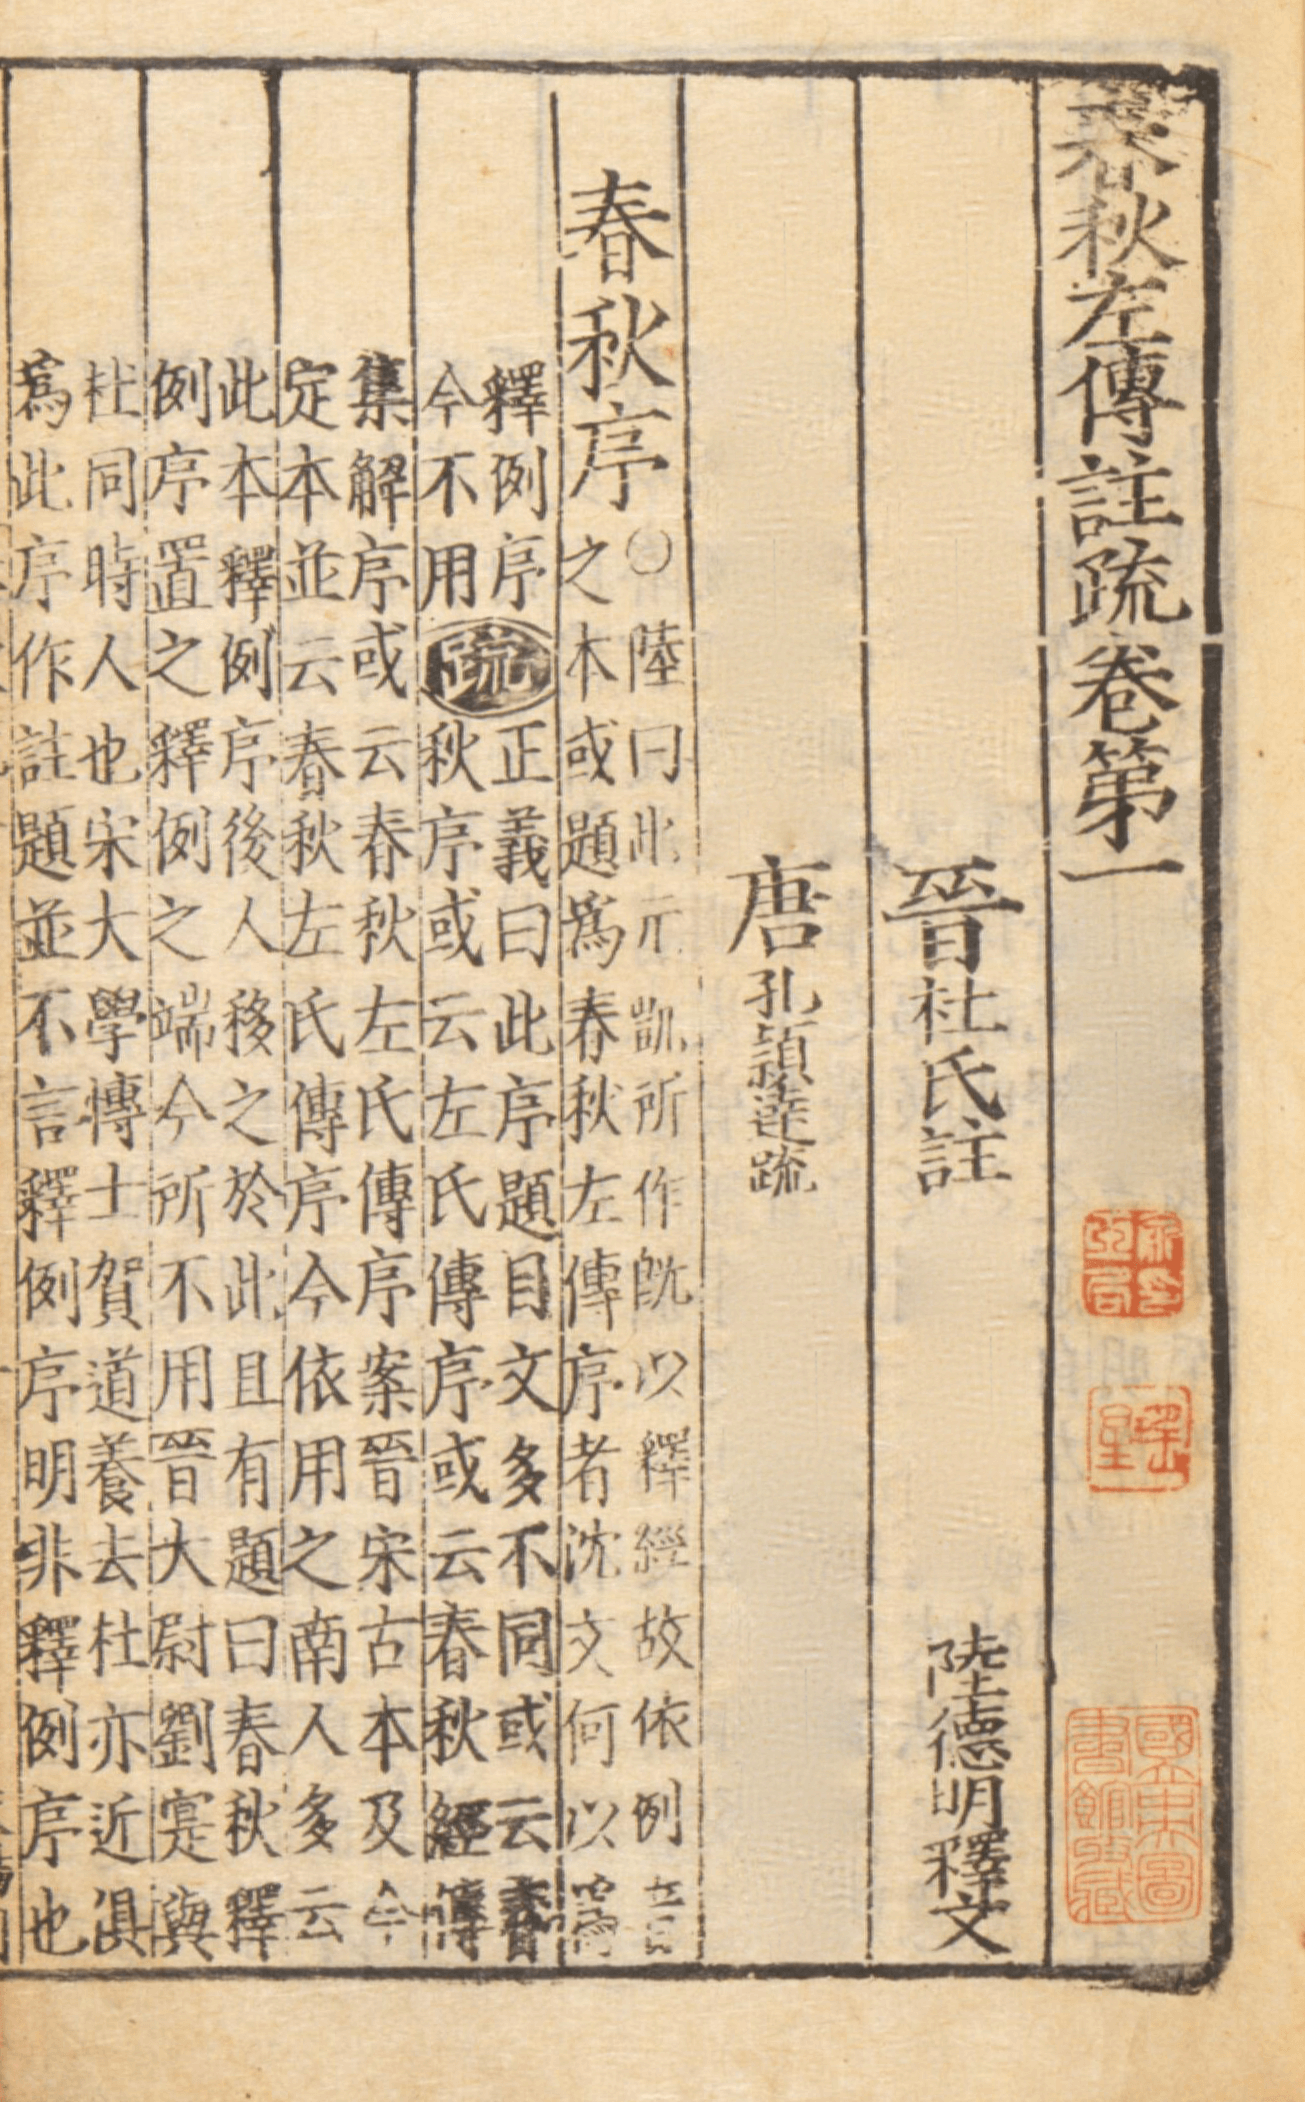 春秋左傳註疏卷第一
晉杜氏註　陸德明釋文
唐孔穎達疏
春秋序
○陸曰此元凱所作旣以釋經故依例音
之本或題爲春秋左傳序者沈文何以爲
釋例序
今不用
疏
正義曰此序題目文多不同或云春
秋序或云左氏傳序或云春秋經傳
集解序或云春秋左氏傳序案晉宋古本及今
定本並云春秋左氏傳序今依用之南人多云
此本釋例序後人移之於此且有題曰春秋釋
例序置之釋例之端今所不用晉大尉劉寔與
杜同時人也宋大學慱士賀道養去杜亦近俱
爲此序作註題並不言釋例序明非釋例序也